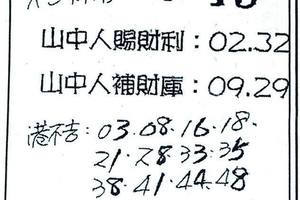 山中人賜財利：02.32
山中人補財庫：09.29
港不吉：03.08.16.18.
21.28.33.35
38.41.44.48